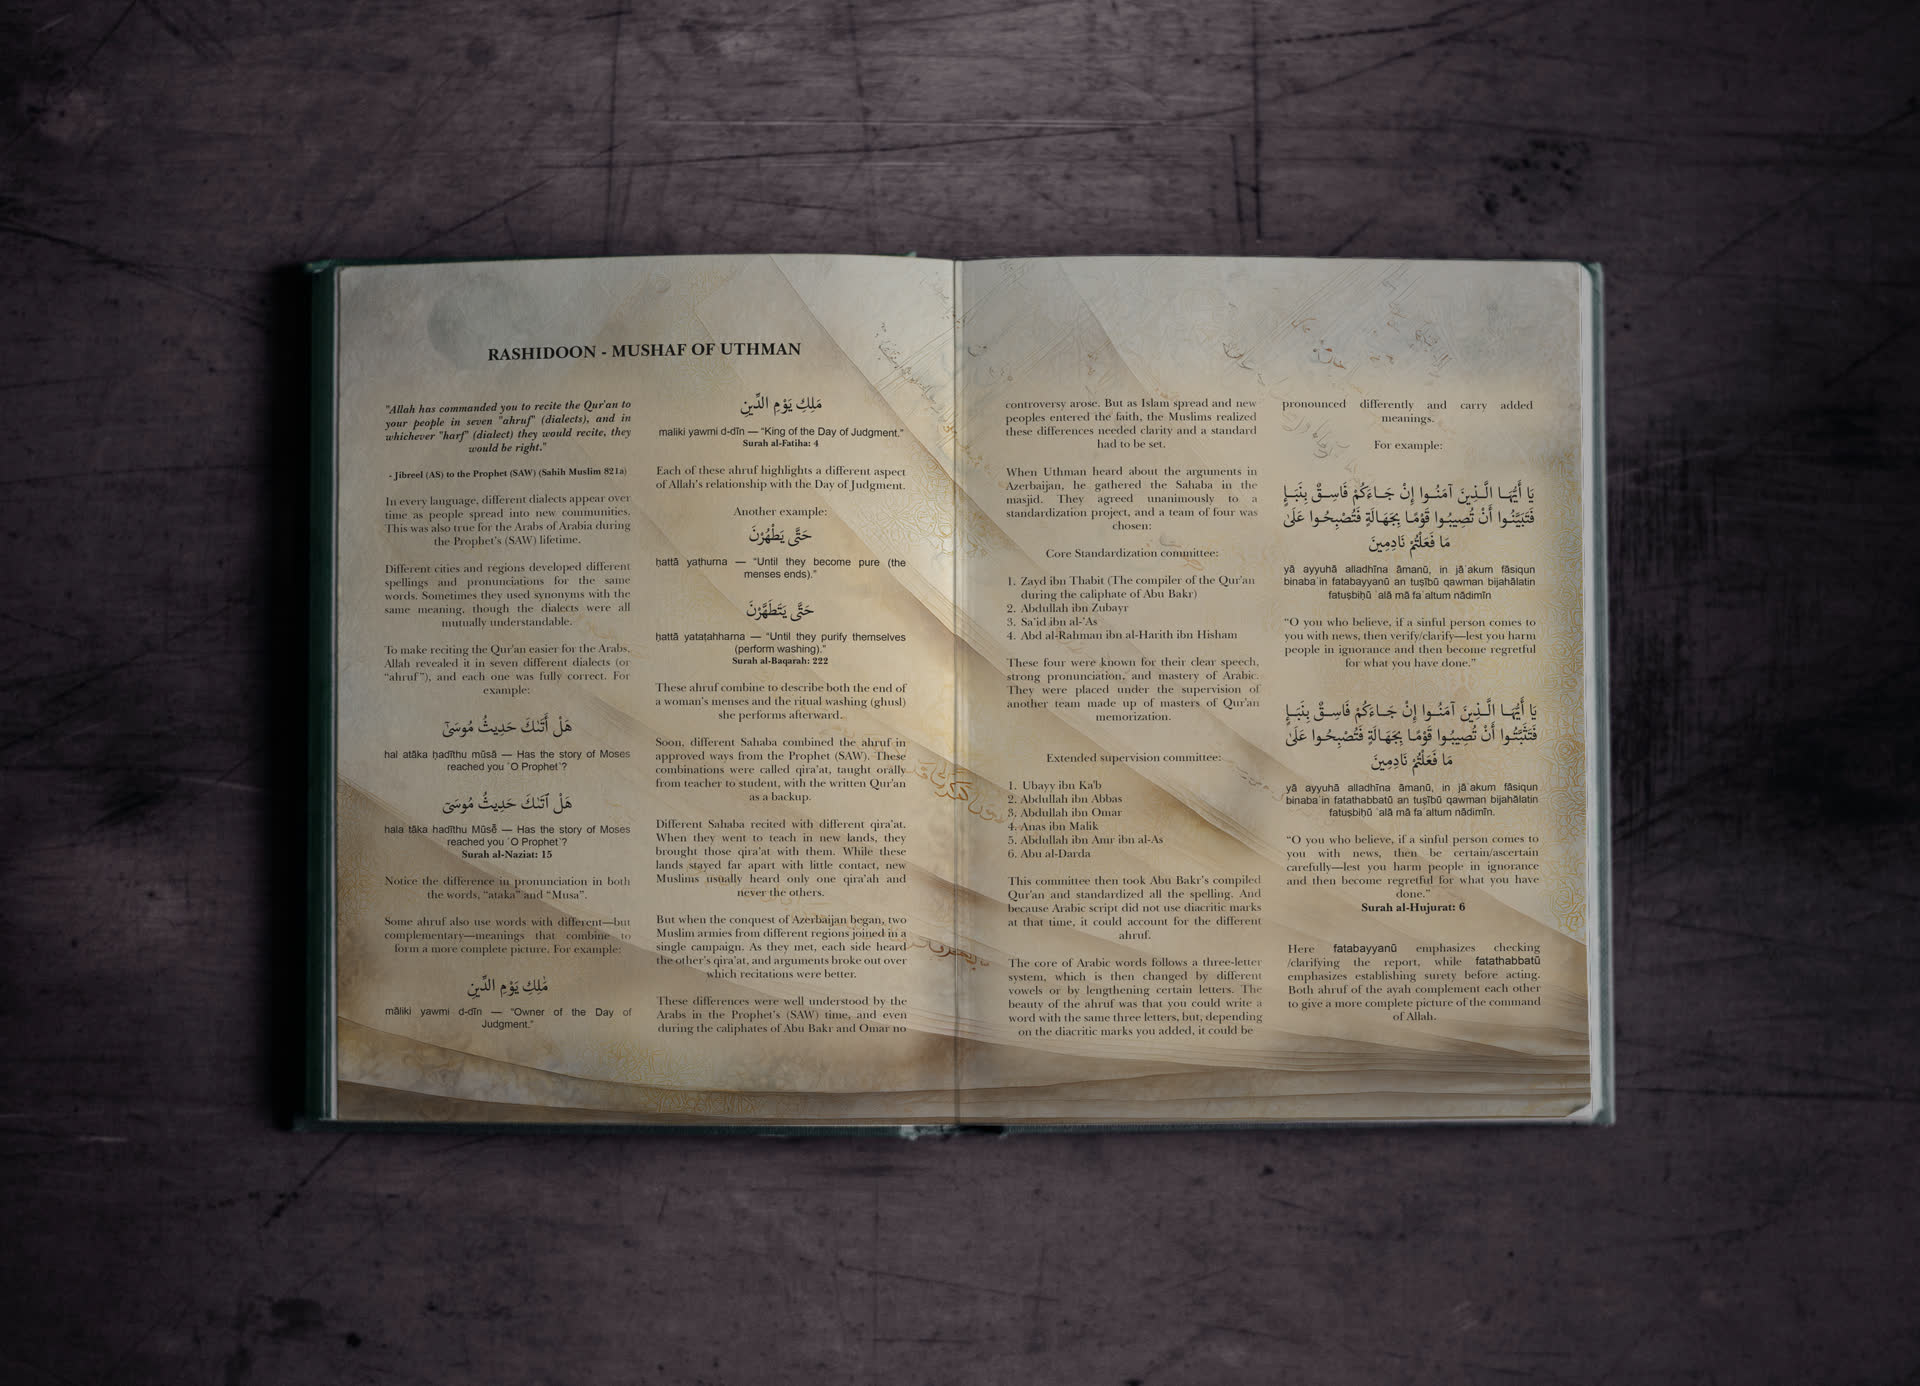 RASHIDOON - MUSHAF OF UTHMAN
"Allah has commanded you to recite the Qur'an to
your people in seven "ahruf" (dialects), and in
whichever "harf" (dialect) they would recite, they
would be right."
- Jibreel (AS) to the Prophet (SAW) (Sahih Muslim 821a)
In every language, different dialects appear over
time as people spread into new communities.
This was also true for the Arabs of Arabia during
the Prophet's (SAW) lifetime.
Different cities and regions developed different
spellings and pronunciations for the same
words. Sometimes they used synonyms with the
same meaning, though the dialects were all
mutually understandable.
To make reciting the Qur'an easier for the Arabs,
Allah revealed it in seven different dialects (or
“ahruf”), and each one was fully correct. For
example:
هَلْ أَتَىٰكَ حَدِيثُ مُوسَىٰٓ
hal atāka ḥadīthu mūsā — Has the story of Moses
reached you ˹O Prophet˺?
هَلَ اَتَىٰكَ حَدِيثُ مُوسَىٰٓ
hala tāka hadīthu Mūsē — Has the story of Moses
reached you ˹O Prophet˺?
Surah al-Naziat: 15
Notice the difference in pronunciation in both
the words, “ataka” and “Musa”.
Some ahruf also use words with different—but
complementary—meanings that combine to
form a more complete picture. For example:
مَٰلِكِ يَوْمِ الدِّينِ
māliki yawmi d-dīn — “Owner of the Day of
Judgment.”
مَلِكِ يَوْمِ الدِّينِ
maliki yawmi d-dīn — “King of the Day of Judgment.”
Surah al-Fatiha: 4
Each of these ahruf highlights a different aspect
of Allah's relationship with the Day of Judgment.
Another example:
حَتَّى يَطْهُرْنَ
ḥattā yaṭhurna — “Until they become pure (the
menses ends).”
حَتَّى يَتَطَهَّرْنَ
ḥattā yataṭahharna — “Until they purify themselves
(perform washing).”
Surah al-Baqarah: 222
These ahruf combine to describe both the end of
a woman's menses and the ritual washing (ghusl)
she performs afterward.
Soon, different Sahaba combined the ahruf in
approved ways from the Prophet (SAW). These
combinations were called qira'at, taught orally
from teacher to student, with the written Qur'an
as a backup.
Different Sahaba recited with different qira'at.
When they went to teach in new lands, they
brought those qira'at with them. While these
lands stayed far apart with little contact, new
Muslims usually heard only one qira'ah and
never the others.
But when the conquest of Azerbaijan began, two
Muslim armies from different regions joined in a
single campaign. As they met, each side heard
the other's qira'at, and arguments broke out over
which recitations were better.
These differences were well understood by the
Arabs in the Prophet's (SAW) time, and even
during the caliphates of Abu Bakr and Omar no
controversy arose. But as Islam spread and new
peoples entered the faith, the Muslims realized
these differences needed clarity and a standard
had to be set.
When Uthman heard about the arguments in
Azerbaijan, he gathered the Sahaba in the
masjid. They agreed unanimously to a
standardization project, and a team of four was
chosen:
Core Standardization committee:
1. Zayd ibn Thabit (The compiler of the Qur'an
during the caliphate of Abu Bakr)
2. Abdullah ibn Zubayr
3. Sa'id ibn al-'As
4. Abd al-Rahman ibn al-Harith ibn Hisham
These four were known for their clear speech,
strong pronunciation, and mastery of Arabic.
They were placed under the supervision of
another team made up of masters of Qur'an
memorization.
Extended supervision committee:
1. Ubayy ibn Ka'b
2. Abdullah ibn Abbas
3. Abdullah ibn Omar
4. Anas ibn Malik
5. Abdullah ibn Amr ibn al-As
6. Abu al-Darda
This committee then took Abu Bakr's compiled
Qur'an and standardized all the spelling. And
because Arabic script did not use diacritic marks
at that time, it could account for the different
ahruf.
The core of Arabic words follows a three-letter
system, which is then changed by different
vowels or by lengthening certain letters. The
beauty of the ahruf was that you could write a
word with the same three letters, but, depending
on the diacritic marks you added, it could be
pronounced differently and carry added
meanings.
For example:
يَا أَيُّهَا الَّذِينَ آمَنُوا إِنْ جَاءَكُمْ فَاسِقٌ بِنَبَإٍ
فَتَبَيَّنُوا أَنْ تُصِيبُوا قَوْمًا بِجَهَالَةٍ فَتُصْبِحُوا عَلَىٰ
مَا فَعَلْتُمْ نَادِمِينَ
yā ayyuhā alladhīna āmanū, in jāʾakum fāsiqun
binabaʾin fatabayyanū an tuṣībū qawman bijahālatin
fatuṣbiḥū ʿalā mā faʿaltum nādimīn
“O you who believe, if a sinful person comes to
you with news, then verify/clarify—lest you harm
people in ignorance and then become regretful
for what you have done.”
يَا أَيُّهَا الَّذِينَ آمَنُوا إِنْ جَاءَكُمْ فَاسِقٌ بِنَبَإٍ
فَتَثَبَّتُوا أَنْ تُصِيبُوا قَوْمًا بِجَهَالَةٍ فَتُصْبِحُوا عَلَىٰ
مَا فَعَلْتُمْ نَادِمِينَ
yā ayyuhā alladhīna āmanū, in jāʾakum fāsiqun
binabaʾin fatathabbatū an tuṣībū qawman bijahālatin
fatuṣbiḥū ʿalā mā faʿaltum nādimīn.
“O you who believe, if a sinful person comes to
you with news, then be certain/ascertain
carefully—lest you harm people in ignorance
and then become regretful for what you have
done.”
Surah al-Hujurat: 6
Here fatabayyanū emphasizes checking
/clarifying the report, while fatathabbatū
emphasizes establishing surety before acting.
Both ahruf of the ayah complement each other
to give a more complete picture of the command
of Allah.